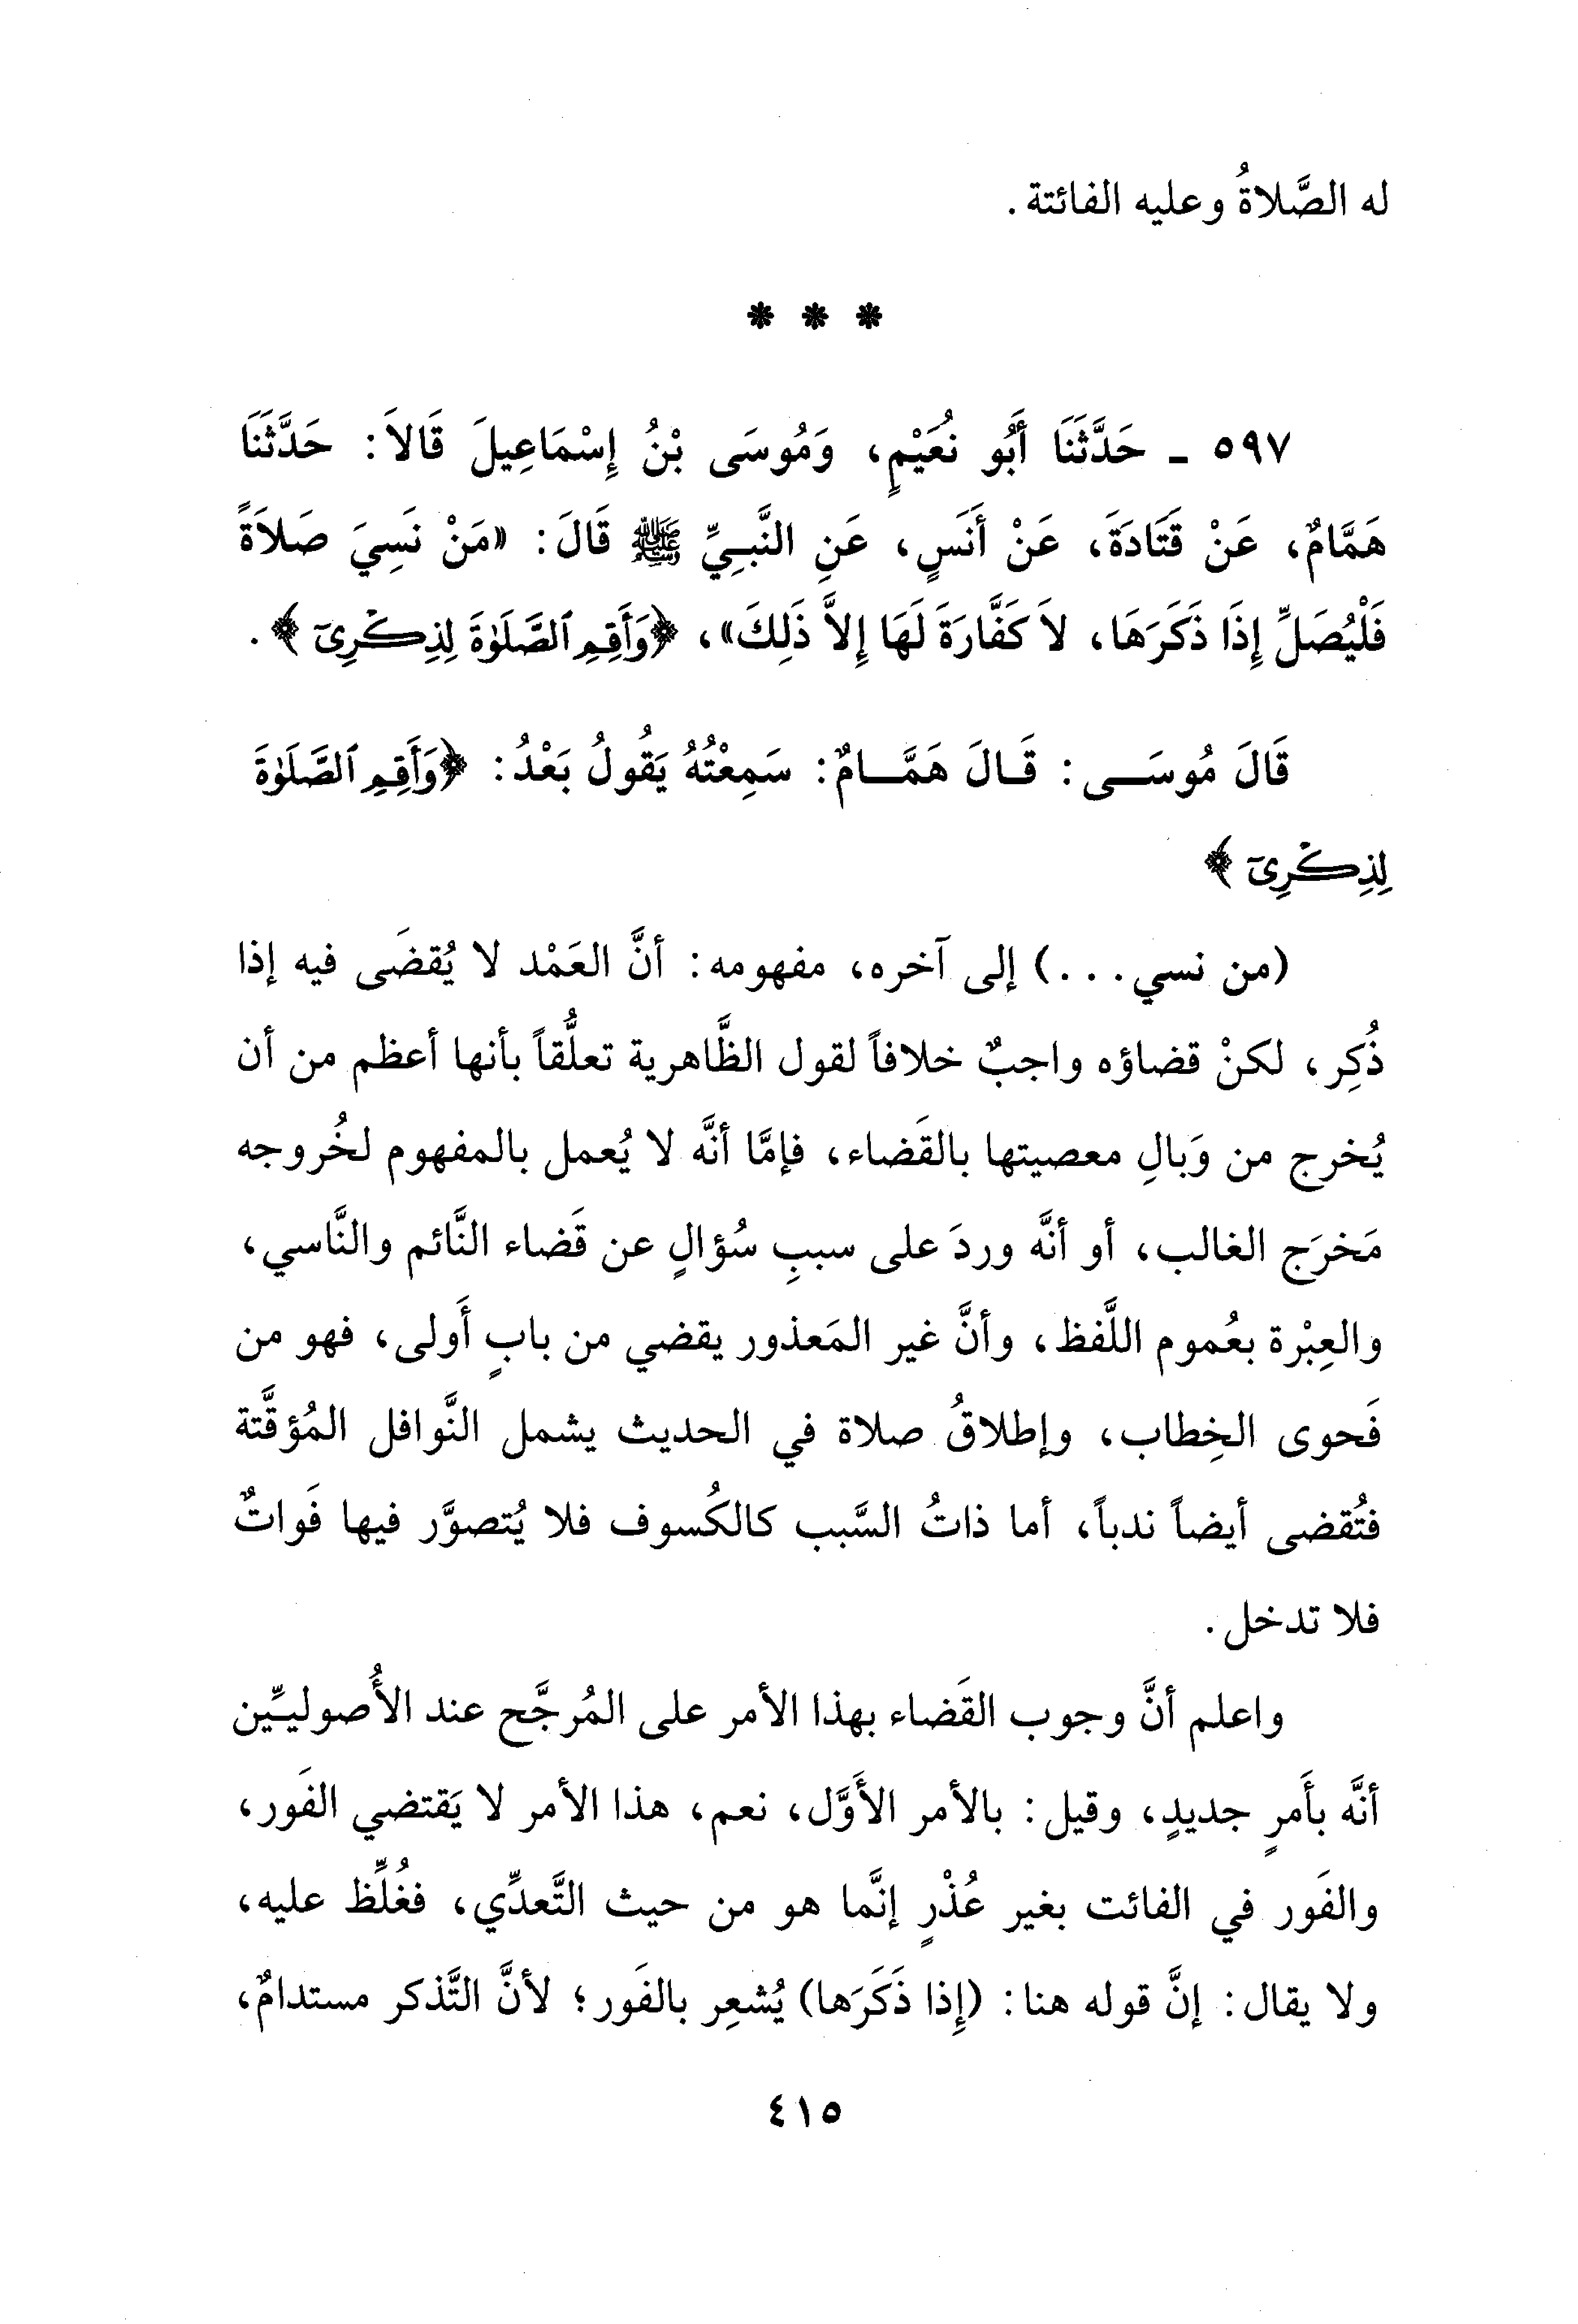 له الصَّلاةُ وعليه الفائتة.
* * *
٥٩٧ ـ حَدَّثَنَا أَبُو نُعَيْمٍ، وَمُوسَى بْنُ إِسْمَاعِيلَ قَالاَ: حَدَّثَنَا
هَمَّامٌ، عَنْ قَتَادَةَ، عَنْ أَنَسٍ، عَنِ النَّبِيِّ ﷺ قَالَ: «مَنْ نَسِيَ صَلاَةً
فَلْيُصَلِّ إِذَا ذَكَرَهَا، لاَ كَفَّارَةَ لَهَا إِلاَّ ذَلِكَ»، ﴿وَأَقِمِ ٱلصَّلَوٰةَ لِذِكْرِىٓ﴾.
قَالَ مُوسَى: قَالَ هَمَّامٌ: سَمِعْتُهُ يَقُولُ بَعْدُ: ﴿وَأَقِمِ ٱلصَّلَوٰةَ
لِذِكْرِىٓ﴾
(من نسي...) إلى آخره، مفهومه: أنَّ العَمْد لا يُقضَى فيه إذا
ذُكِر، لكنْ قضاؤه واجبٌ خلافاً لقول الظَّاهرية تعلُّقاً بأنها أعظم من أن
يُخرج من وَبالِ معصيتها بالقَضاء، فإمَّا أنَّه لا يُعمل بالمفهوم لخُروجه
مَخرَج الغالب، أو أنَّه وردَ على سببِ سُؤالٍ عن قَضاء النَّائم والنَّاسي،
والعِبْرة بعُموم اللَّفظ، وأنَّ غير المَعذور يقضي من بابٍ أَولى، فهو من
فَحوى الخِطاب، وإطلاقُ صلاة في الحديث يشمل النَّوافل المُؤقَّتة
فتُقضى أيضاً ندباً، أما ذاتُ السَّبب كالكُسوف فلا يُتصوَّر فيها فَواتٌ
فلا تدخل.
واعلم أنَّ وجوب القَضاء بهذا الأمر على المُرجَّح عند الأُصوليـِّين
أنَّه بأَمرٍ جديدٍ، وقيل: بالأمر الأَوَّل، نعم، هذا الأمر لا يَقتضي الفَور،
والفَور في الفائت بغير عُذْرٍ إنَّما هو من حيث التَّعدِّي، فغُلِّظ عليه،
ولا يقال: إنَّ قوله هنا: (إِذا ذَكَرَها) يُشعِر بالفَور؛ لأنَّ التَّذكر مستدامٌ،
٤١٥